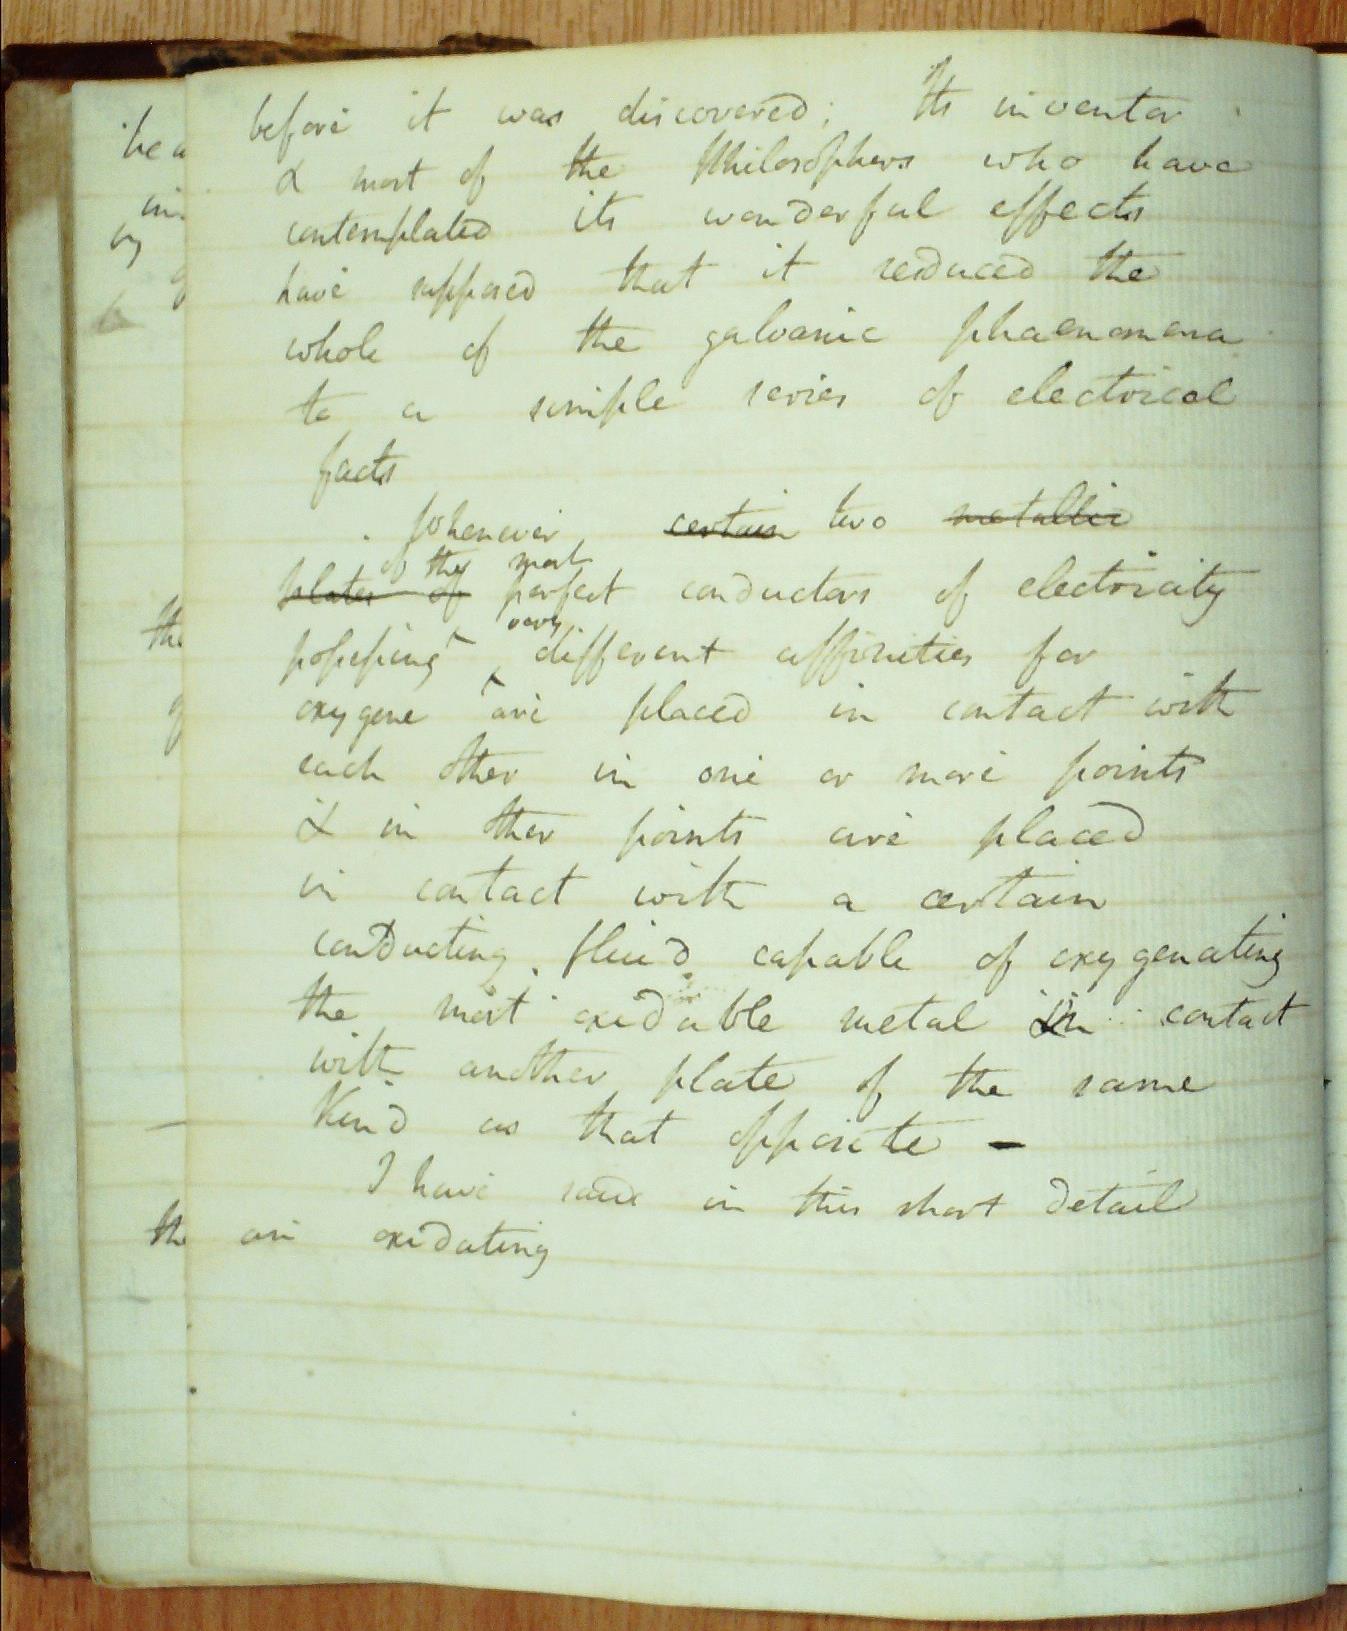 before it was discovered; Its inventor
& most of the Philosophers who have
contemplated its wonderful effects
have supposed that it reduced the
whole of the galvanic phaenomena
to a simple series of electrical
facts
Whenever certain two metallic
of the most
plates of perfect conductors of electricity
very
possessing different affinities for
oxygene are placed in contact with
each other in one or more points
& in other points are placed
in contact with a certain
conducting fluid capable of oxygenating
the most oxidable metal in contact
with another plate of the same
Kind as that opposite —
I have said in this short detail
an oxidating